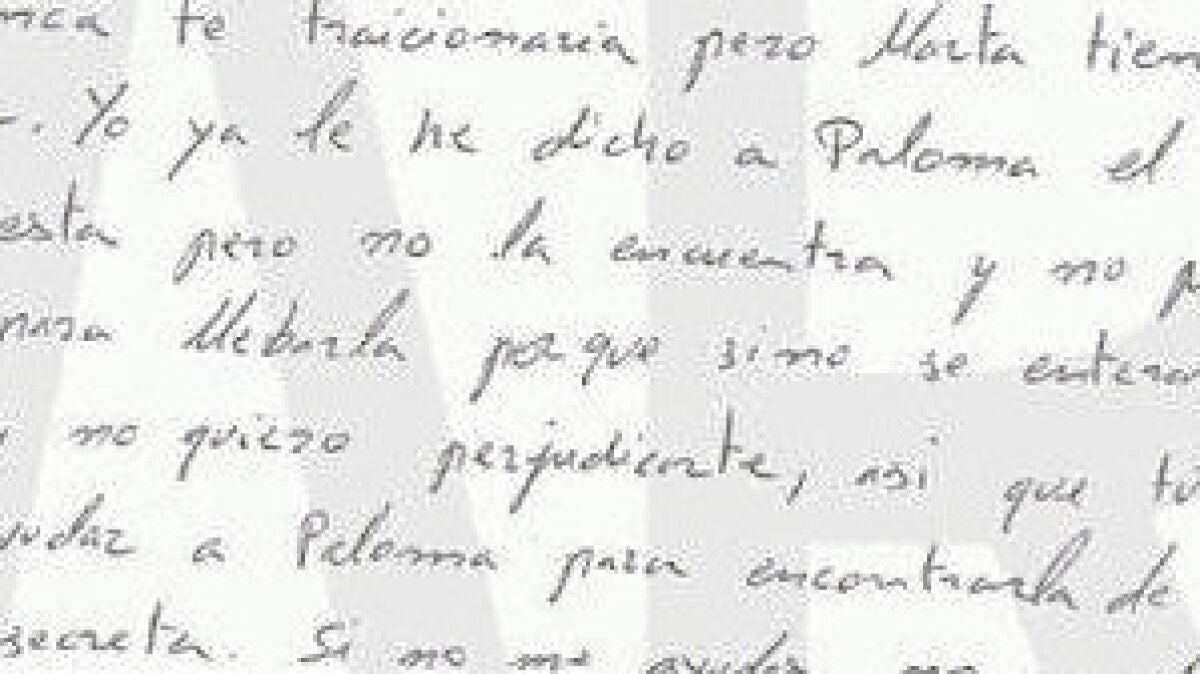 nca te traicionaria pero Marta tien
. Yo ya le he dicho a Paloma el
esta pero no la encuentra y no p
para llebarla porque sino se entera
no quiero perjudicarte, asi que tu
yudar a Paloma para encontrarla de
secreta. Si no me ayudas no